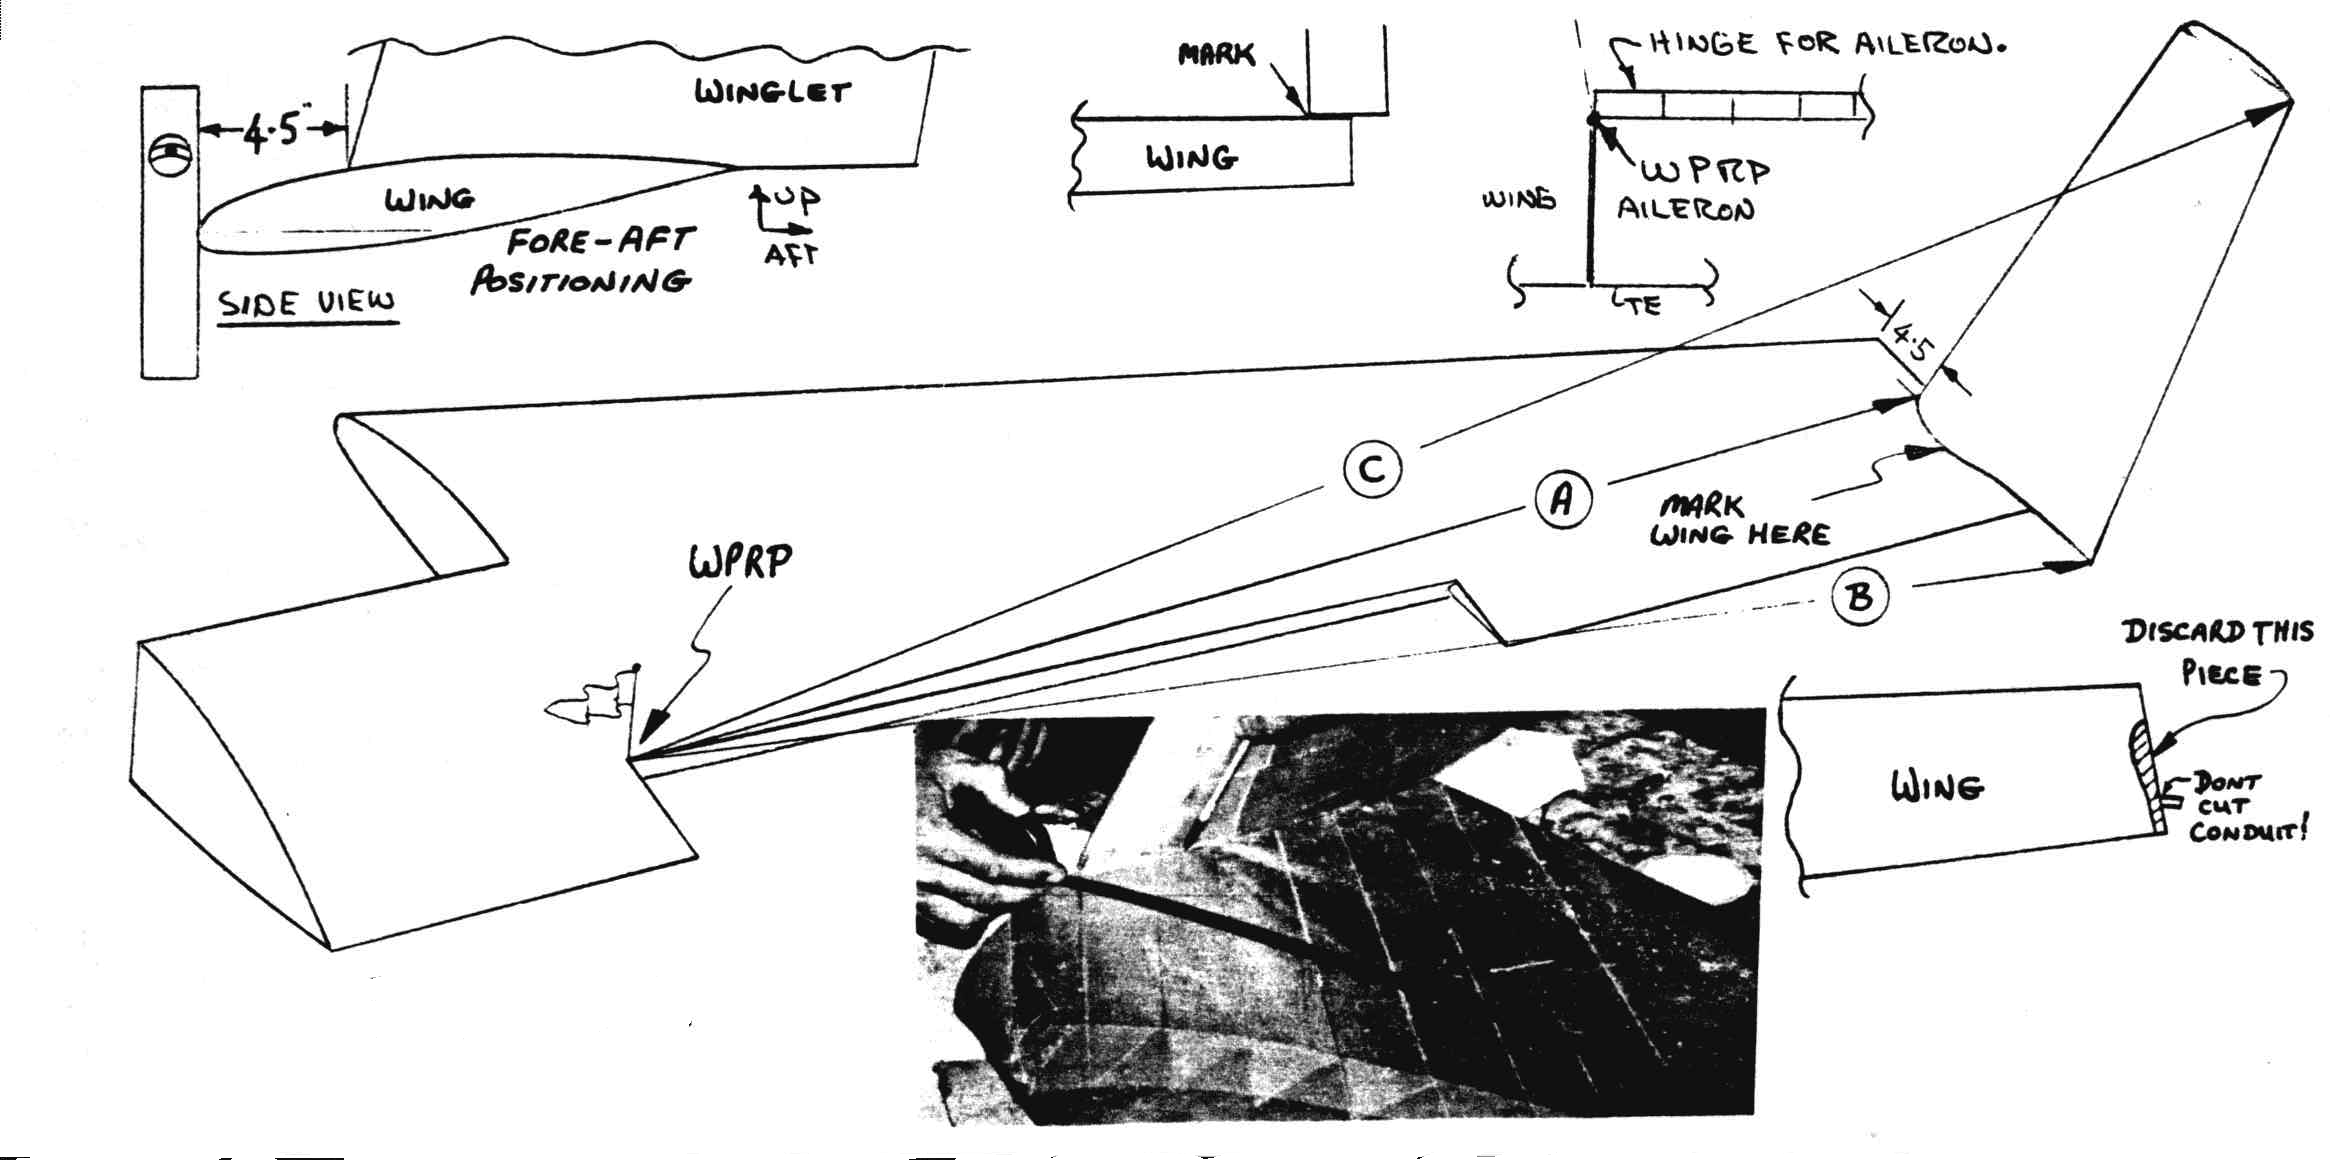 WINGLET
4.5"
WING
UP
AFT
FORE-AFT
POSITIONING
SIDE VIEW
MARK
WING
HINGE FOR AILERON.
WPRP
AILERON
WING
TE
4.5
C
A
MARK
WING HERE
B
WPRP
DISCARD THIS
PIECE
WING
DONT
CUT
CONDUIT!